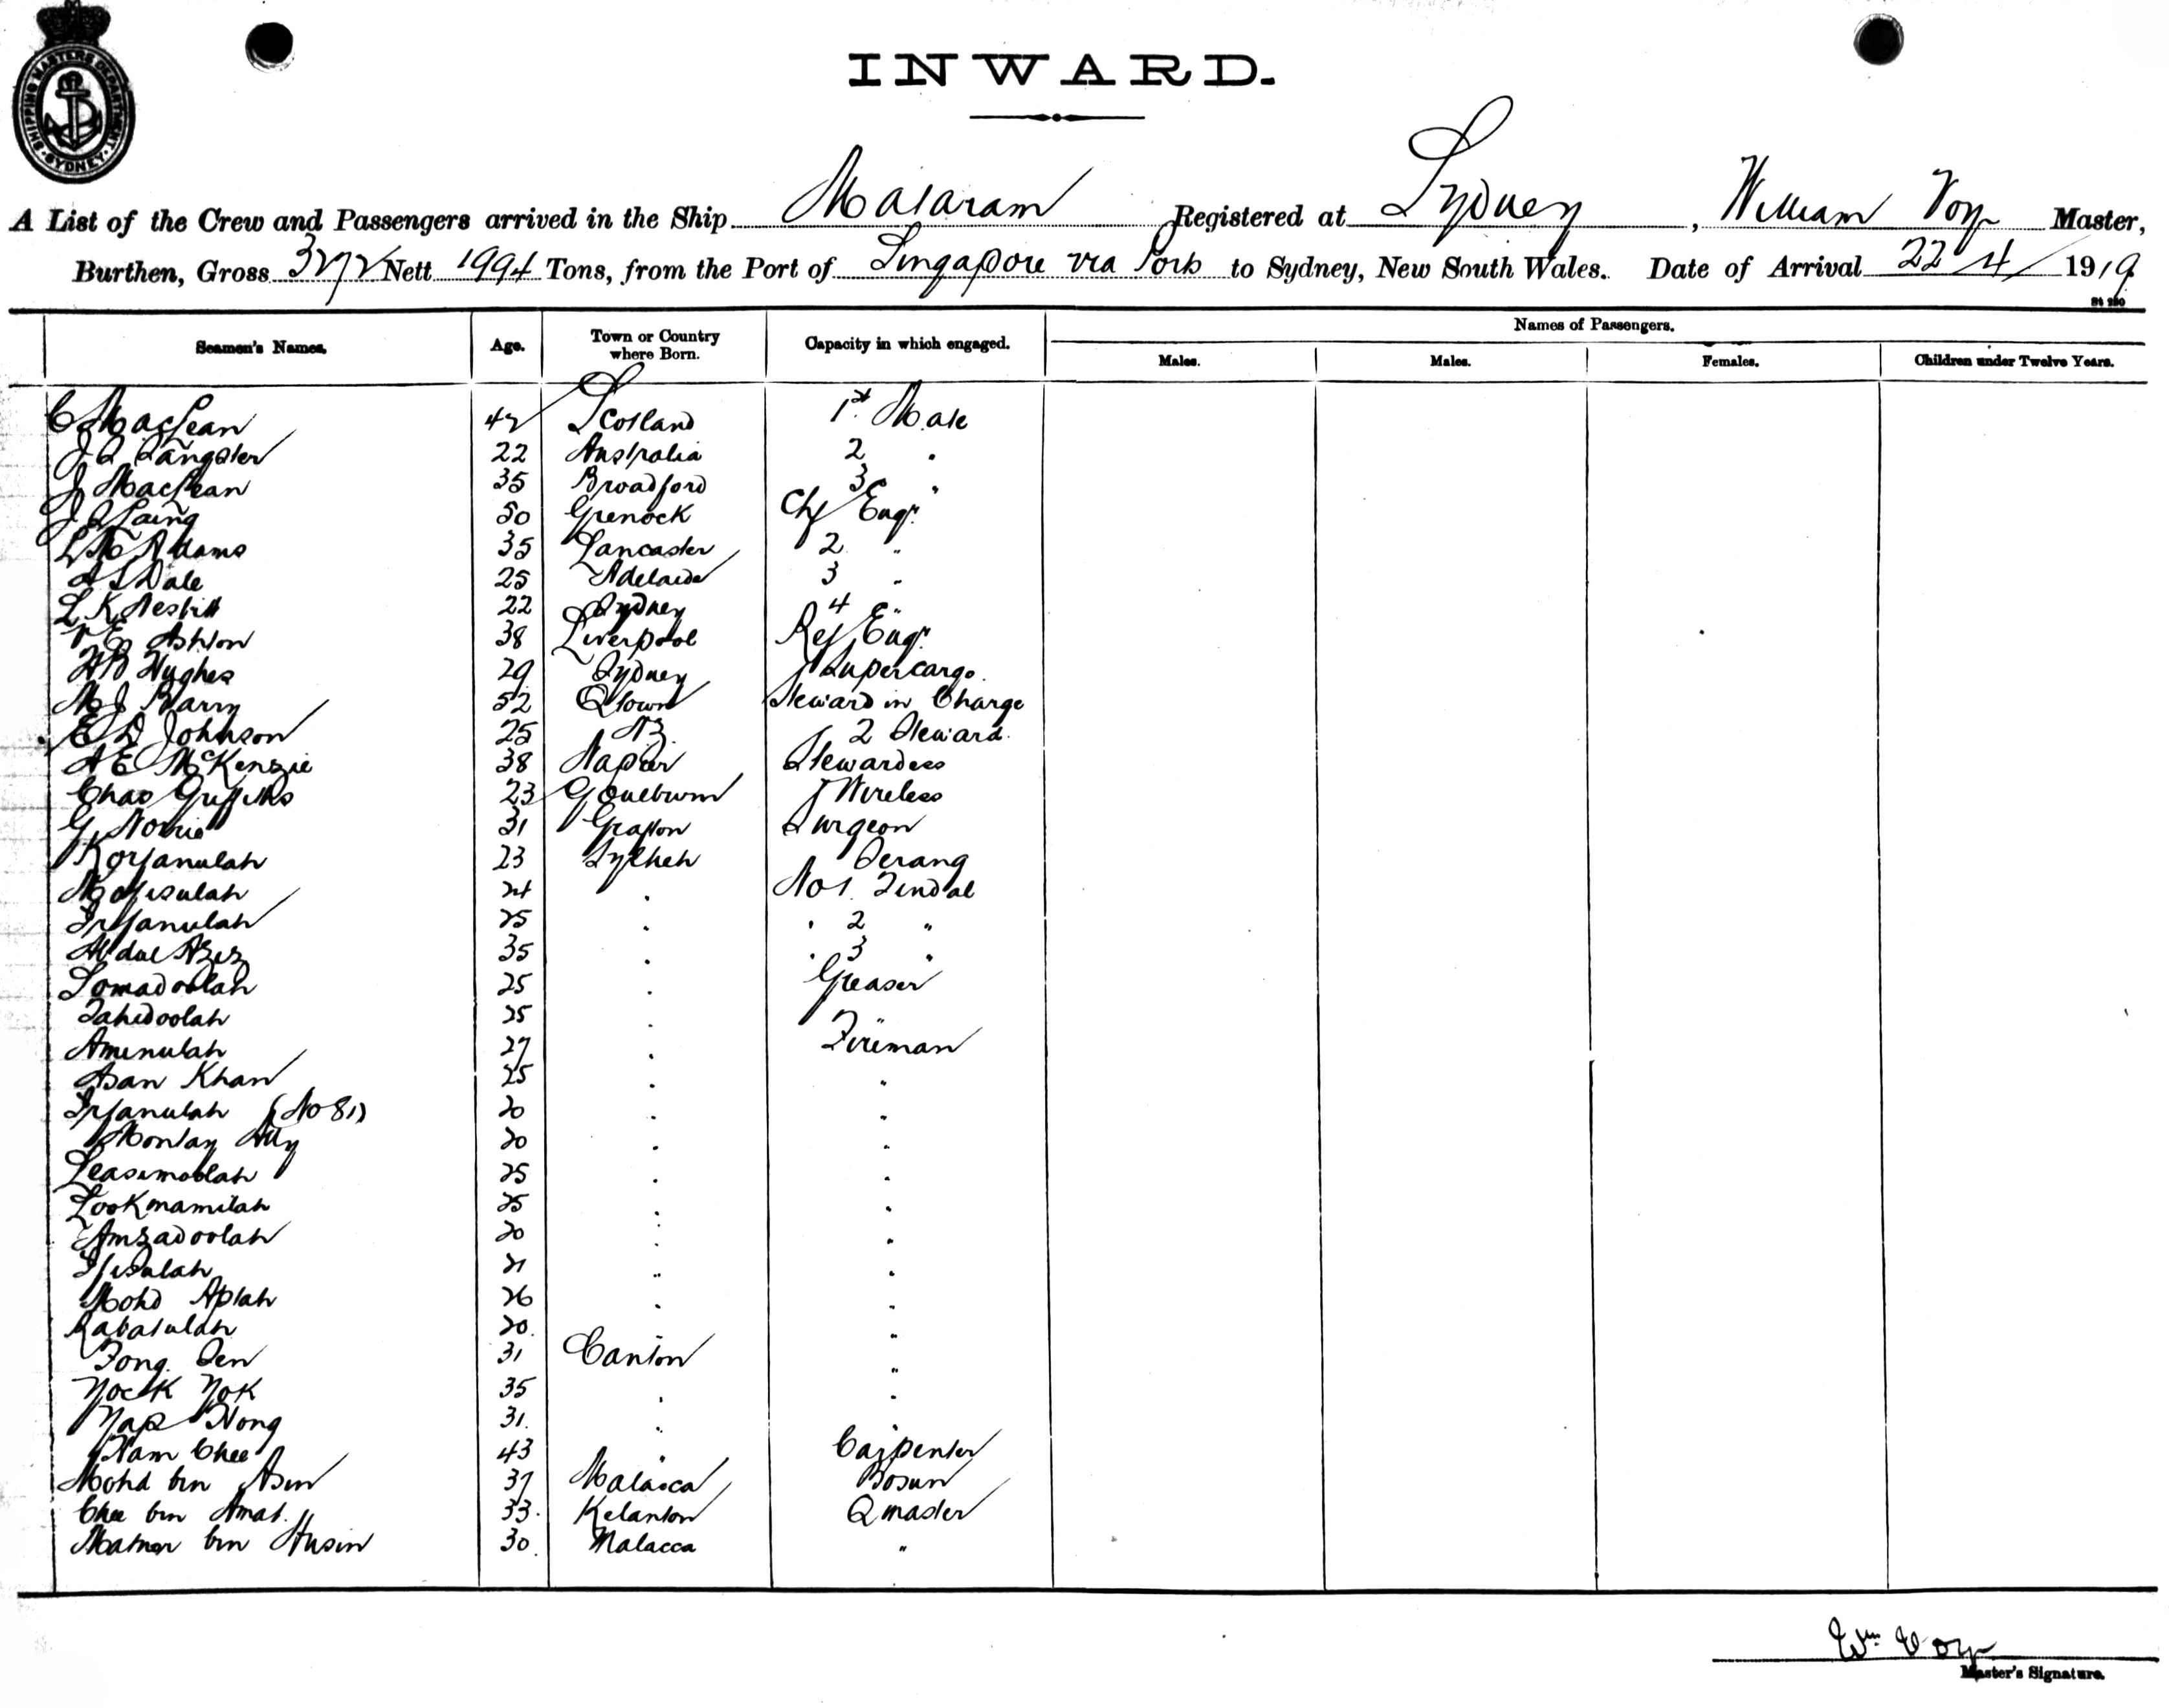 SHIPPING MASTERS DEPARTMENT SYDNEY
INWARD.
A List of the Crew and Passengers arrived in the Ship Mataram Registered at Sydney, William Voy Master,
Burthen, Gross 3272 Nett 1994 Tons, from the Port of Singapore via Ports to Sydney, New South Wales. Date of Arrival 22/4/1919
Seamen's Names. Age. Town or Country where Born. Capacity in which engaged. Names of Passengers.
Males. Males. Females. Children under Twelve Years.
C MacLean 42 Scotland 1st Mate
J Q Sangster 22 Australia 2 "
J MacLean 35 Broadford 3 "
J Q Laing 50 Grenock Chf Engr.
Adams 35 Lancaster 2 "
A S Dale 25 Adelaide 3 "
L K Nesbitt 22 Sydney 4 "
Ashton 38 Liverpool Ref Engr.
H B Hughes 29 Sydney Supercargo.
M J Barry 52 Qtown Steward in Charge
E D Johnson 25 NZ. 2 Steward.
A E McKenzie 38 Napier Stewardess
Chas Griffiths 23 Goulburn Wireless
G. Norrie 31 Grafton Surgeon
Korfanulah 23 Sylheh Serang
Mofisulah 24 " No 1. Tindal
Irfanulah 25 " " 2 "
Abdul Aziz 35 " " 3 "
Somadoolah 25 " Greaser
Tahidoolah 25 " "
Amenulah 27 " Fireman
Asan Khan 25 " "
Irfanulah (No 81) 20 " "
Montay Ally 20 " "
Leasimoolah 25 " "
Lookmamilah 25 " "
Amzadoolah 20 " "
21 " "
Mohd Aplah 26 " "
Rabatulah 20. " "
Fong Sen 31 Canton "
Yock Yok 35 " "
Yap Nong 31. " "
Nam Chee 43 " Carpenter
Mohd bin Asin 37 Malacca Bosun
Chee bin Amat. 33. Kelanton Qmaster
Matnor bin Husin 30. Malacca "
Wm Voy
Master's Signature.